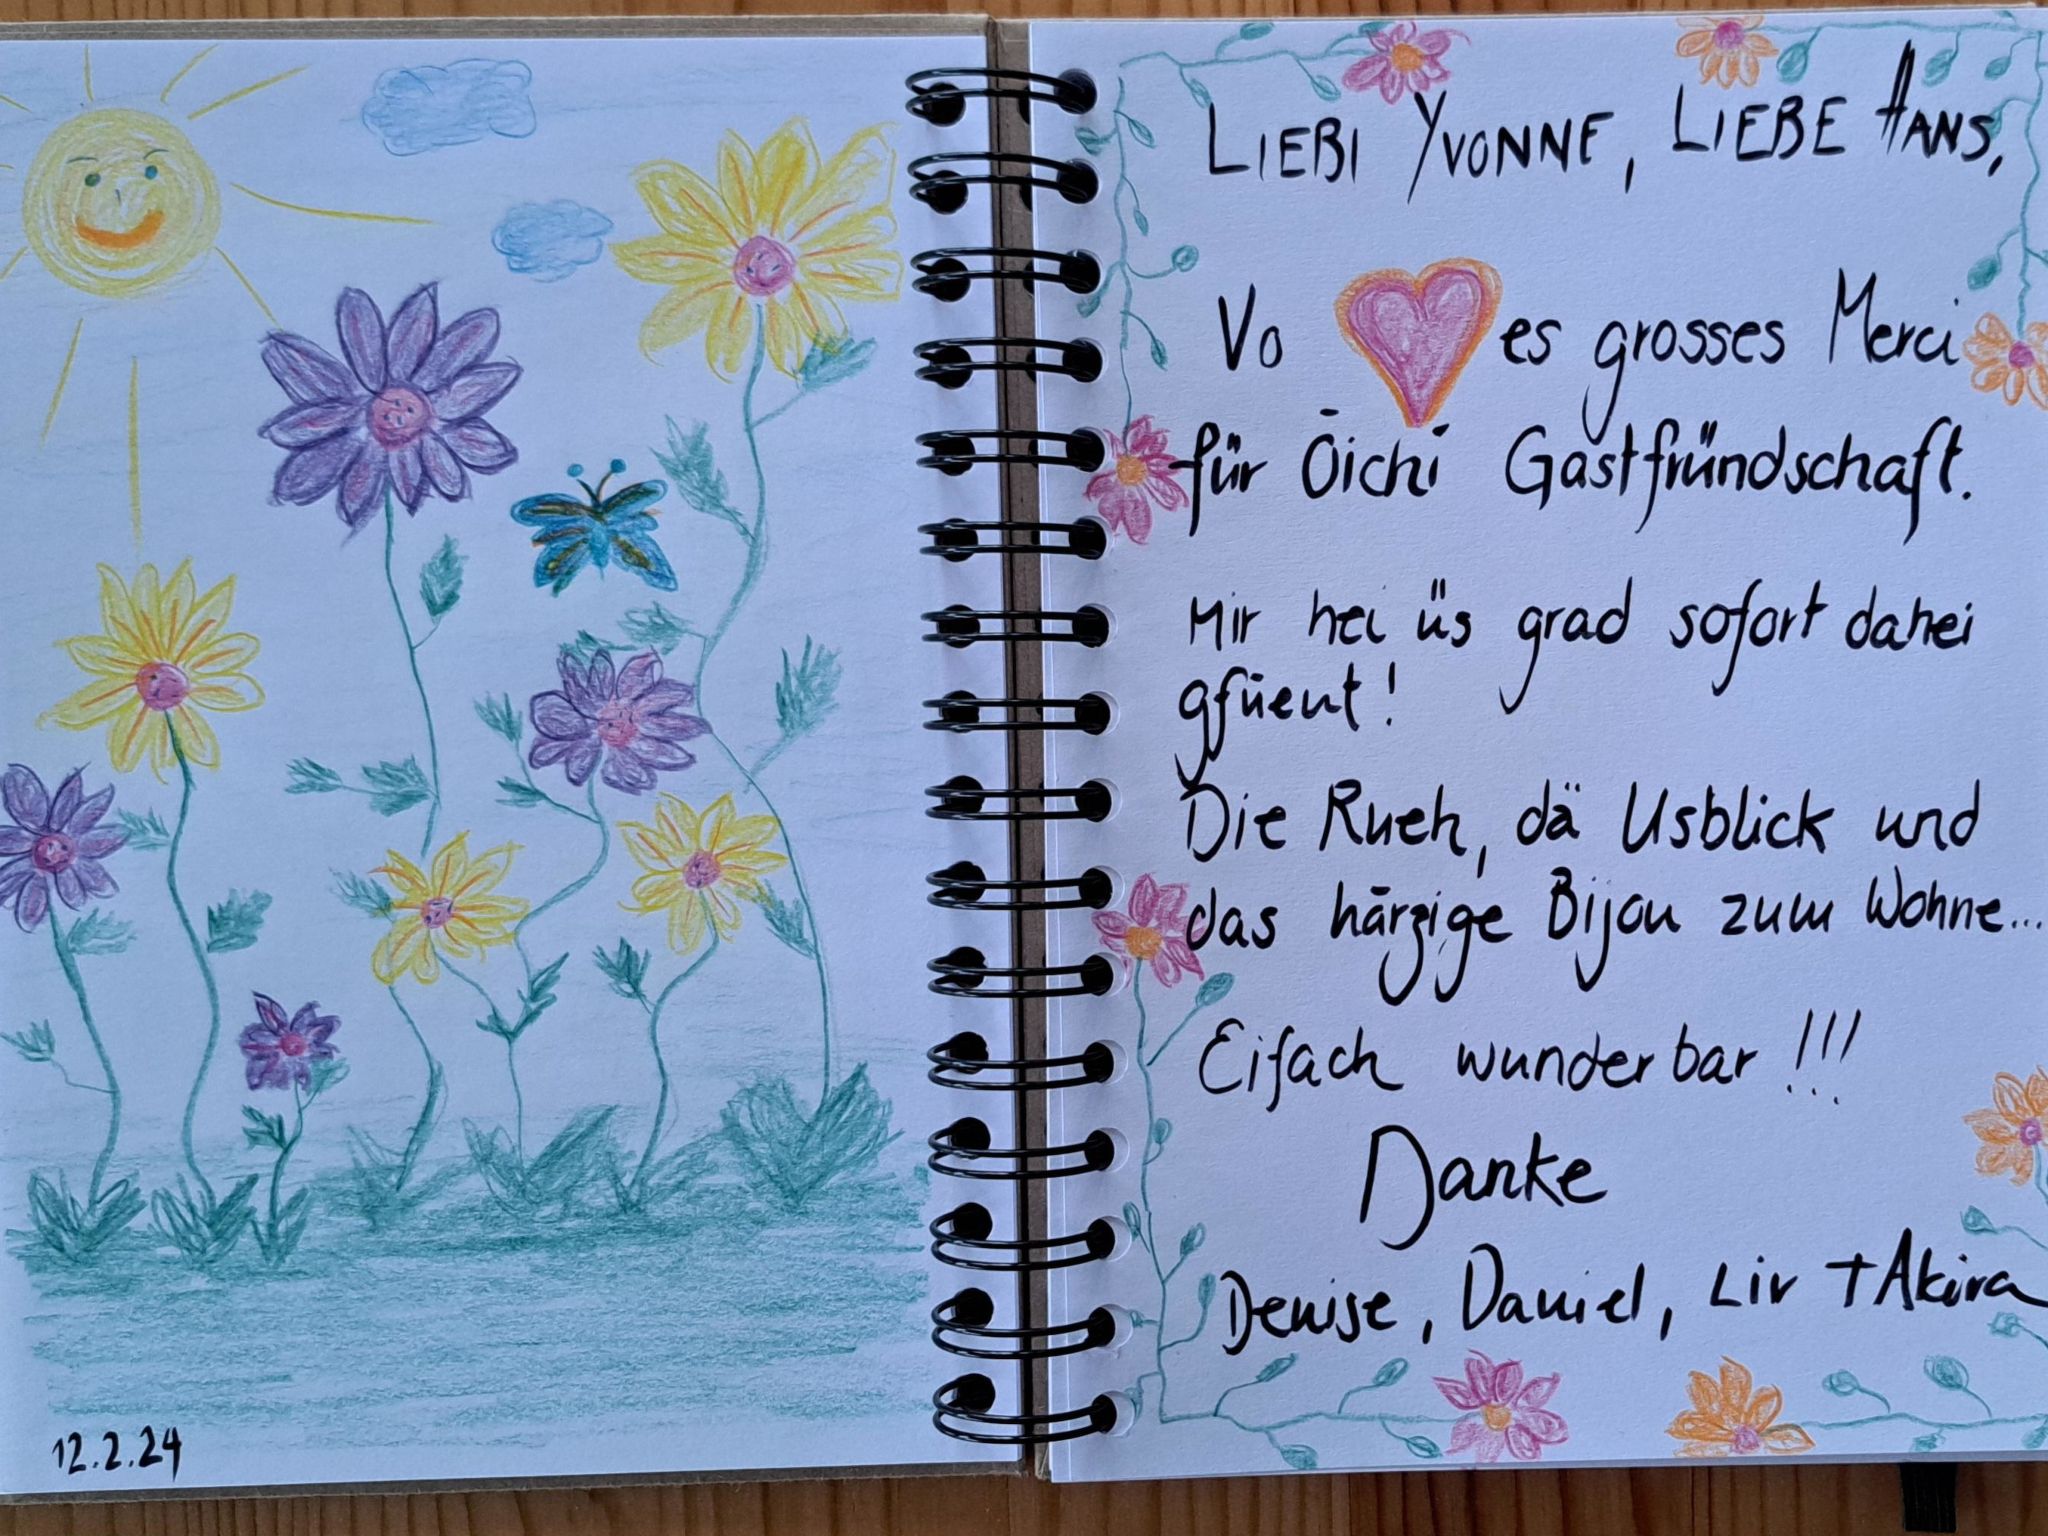 12.2.24
LIEBI YVONNE, LIEBE HANS,
Vo es grosses Merci
für Öichi Gastfründschaft.
Mir hei üs grad sofort dahei
gfüent!
Die Rueh, dä Usblick und
das härzige Bijou zum Wohne...
Eifach wunderbar!!!
Danke
Denise, Daniel, Liv + Akira